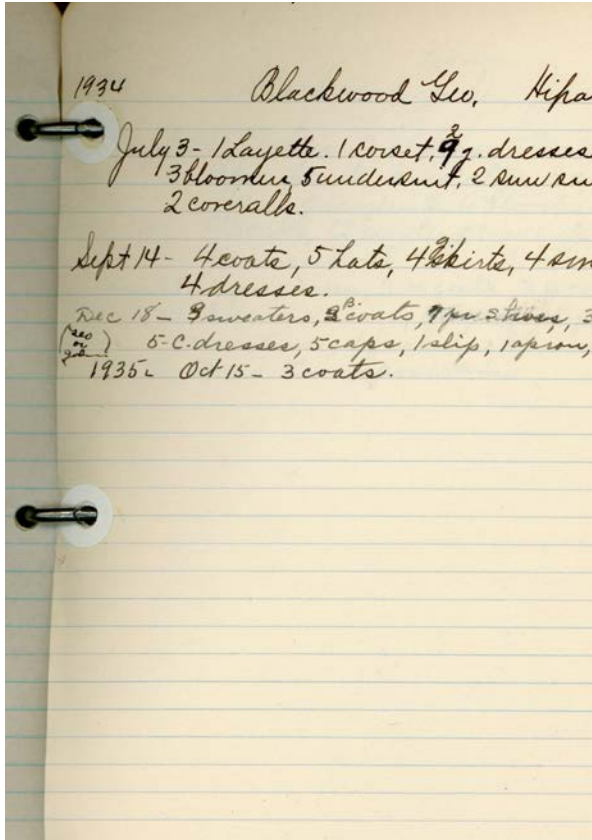 1934 Blackwood Geo. Hipa
July 3 - 1 Layette. 1 corset, 9 g. dresses
2
3 bloomers, 5 undersuit, 2 sun su
2 coveralls.
Sept 14 - 4 coats, 5 hats, 4 skirts, 4 sm
4 dresses.
Dec 18 - sweaters, B. coats, pr shoes, 3
5 - C. dresses, 5 caps, 1 slip, 1 apron,
1935. Oct 15 - 3 coats.